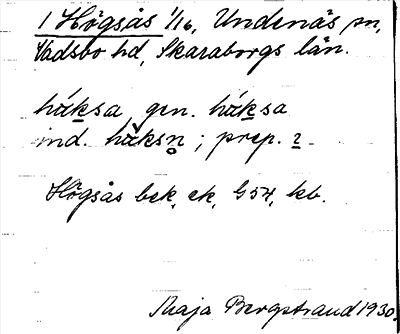 1 Högsås 1/16, Undenäs sn,
Vadsbo hd, Skaraborgs län.
hǻksa gen. hǻksa
ind. håksn̥ ; prep. i.
Högsås bek, ek, G 54, kb.
Maja Bergstrand 1930.